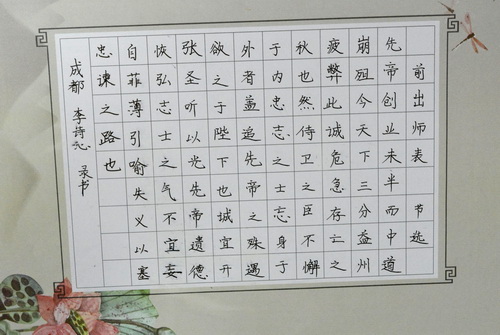 前出师表 节选
先帝创业未半而中道
崩殂今天下三分益州
疲弊此诚危急存亡之
秋也然侍卫之臣不懈
于内忠志之士志身于
外者盖追先帝之殊遇
欲之于陛下也城宜开
张圣听以光先帝遗德
恢弘志士之气不宜妄
自菲薄引喻失义以塞
忠谏之路也
成都 李诗 录书